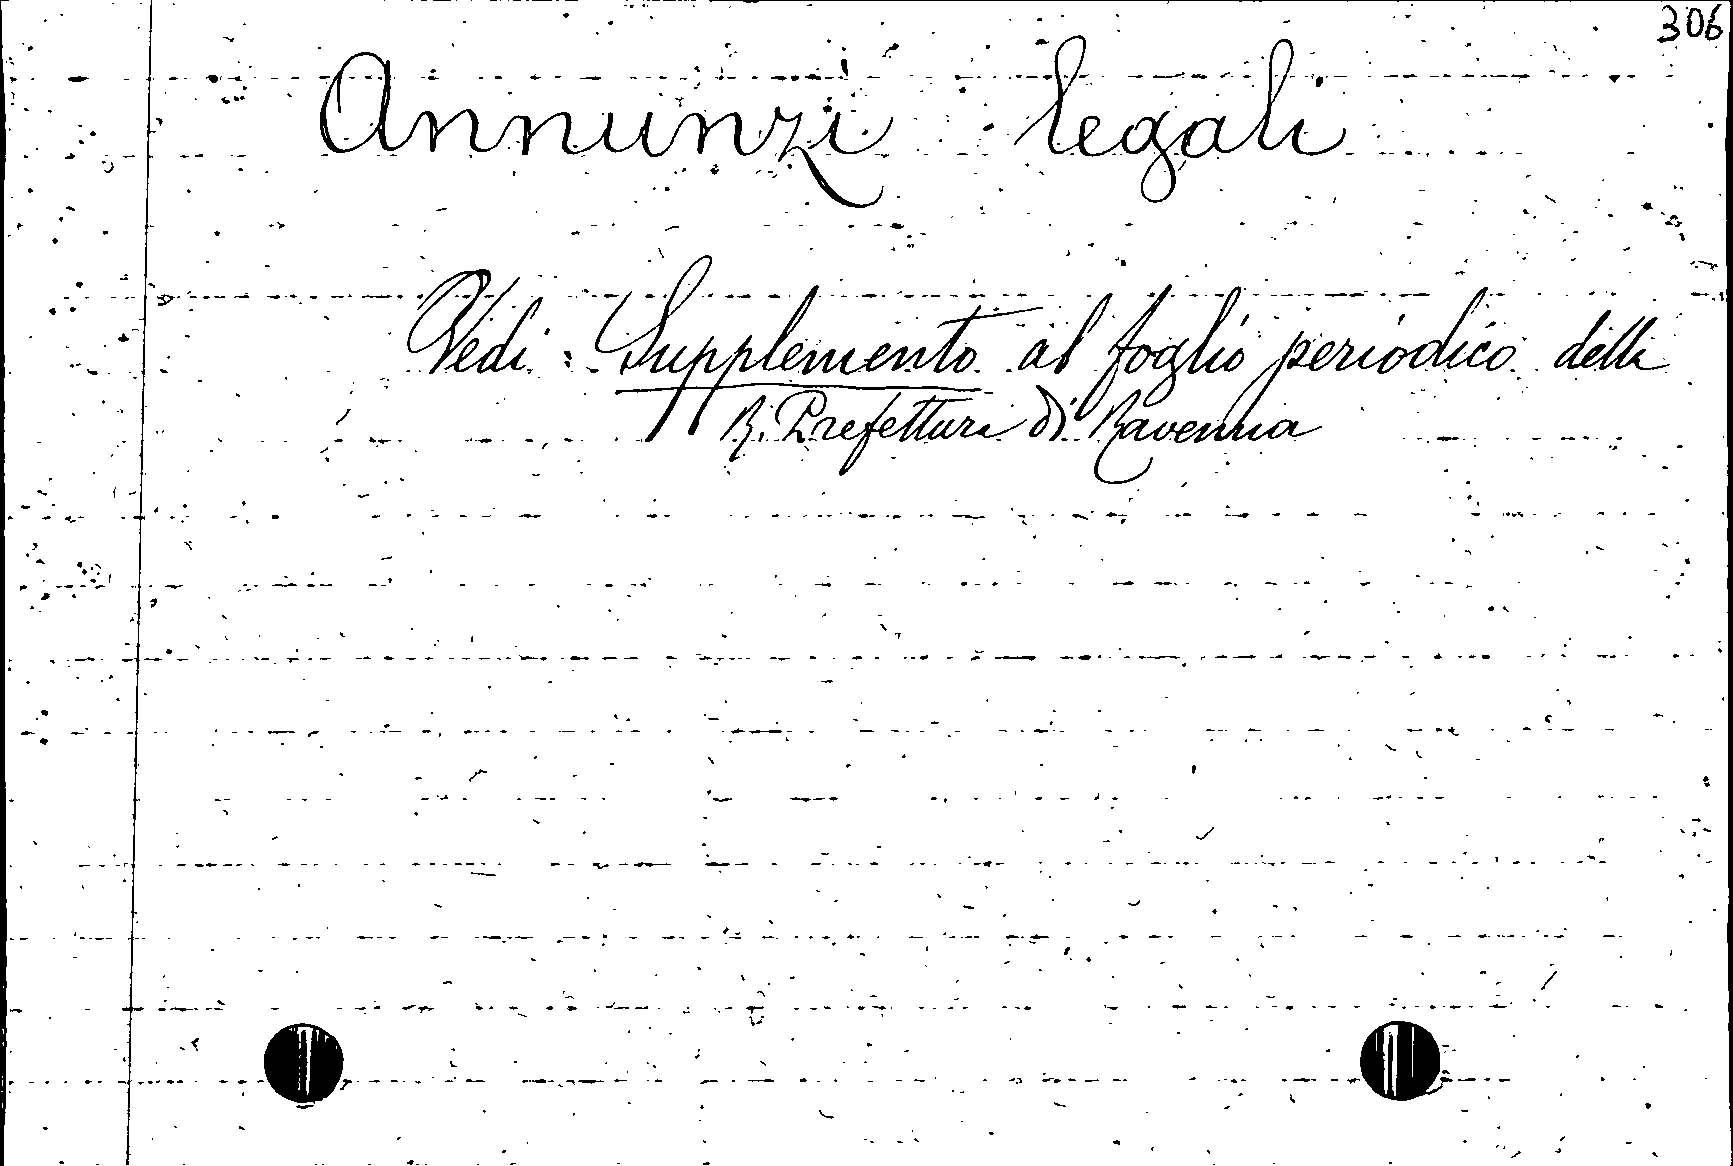 306
Annunzi legali
Vedi: Supplemento al foglio periodico della
R. Prefettura di Ravenna